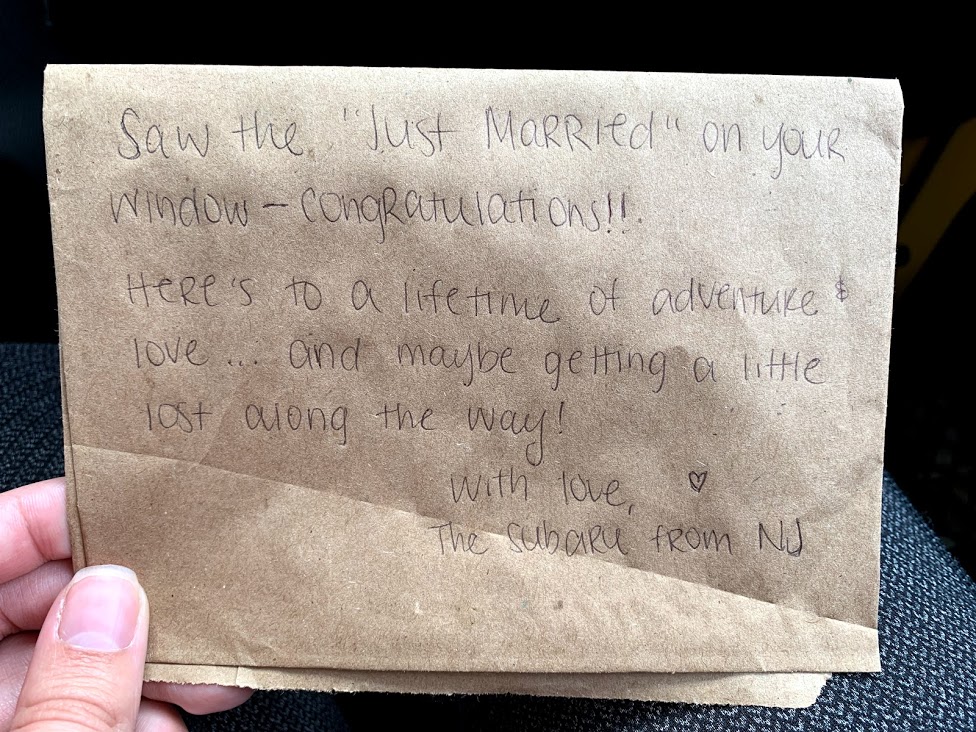 Saw the "Just Married" on your
window - congratulations!!
Here's to a lifetime of adventure &
love ... and maybe getting a little
lost along the way!
With love, ♥
The Subaru from NJ